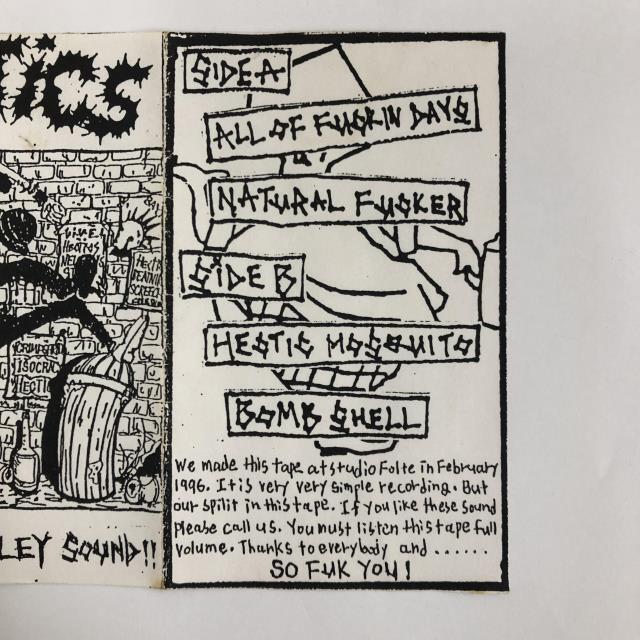 ICS
SIDE A
ALL OF FUCKIN DAYS
NATURAL FUCKER
SIDE B
HECTIC MOSQUITO
BOMB SHELL
LIVE
HECTICS
LEY SOUND!!
We made this tape at studio Folte in February
1996. It is very very simple recording. But
our spilit in this tape. If you like these sound
please call us. You must listen this tape full
volume. Thanks to everybody and ......
SO FUK YOU!